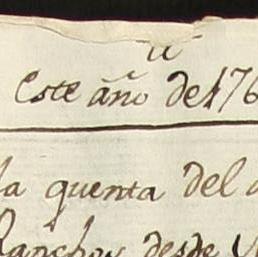 Este año de 176
la quenta del
Ranchos desde